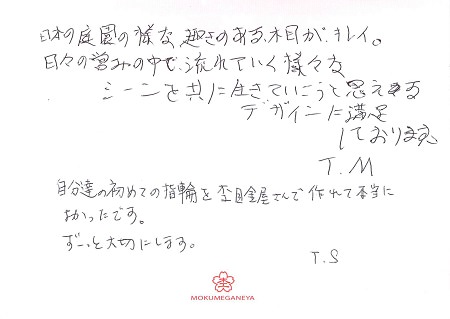 日本の庭園の様な、趣きのある木目が、キレイ。
日々の営みの中で、流れていく様々な
シーンを共に生きていこうと思える
デザインに満足
しております。
T.M
自分達の初めての指輪を杢目金屋さんで作れて本当に
よかったです。
ずーっと大切にします。
T.S
MOKUMEGANEYA